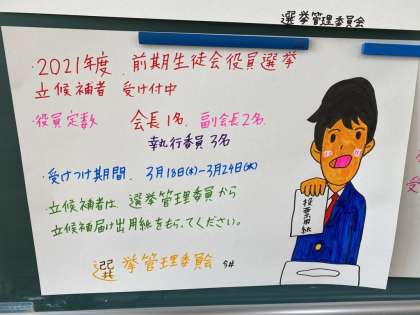 選挙管理委員会
・2021年度 前期生徒会役員選挙
立候補者 受け付中
・役員定数 会長1名 副会長2名
執行委員3名
・受けつけ期間. 3月18日(木)-3月24日(水)
立候補者は 選挙管理委員から
立候補届け出用紙をもらってください。
投票用紙
選挙管理委員会